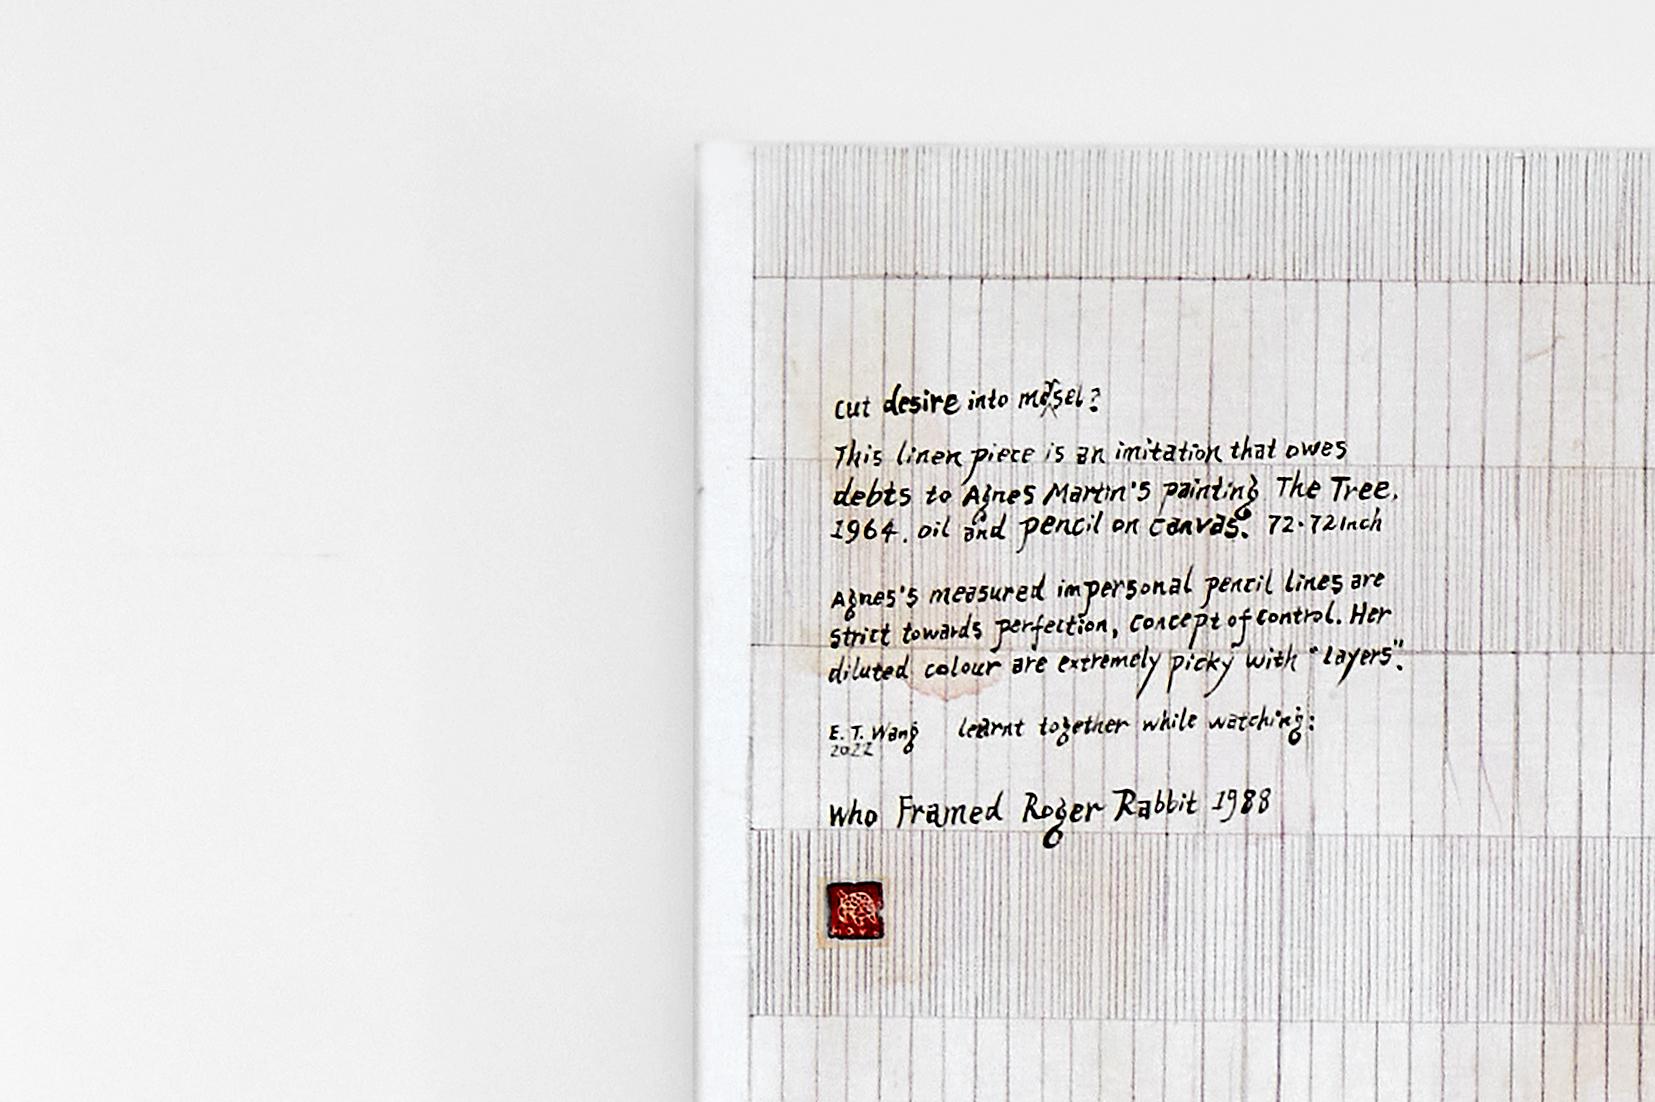 cut desire into mosel?
This linen piece is an imitation that owes
debts to Agnes Martin's painting The Tree,
1964. oil and pencil on canvas. 72·72inch
Agnes's measured impersonal pencil lines are
strict towards perfection, concept of control. Her
diluted colour are extremely picky with "layers".
E. T. Wang learnt together while watching:
2022
Who Framed Roger Rabbit 1988